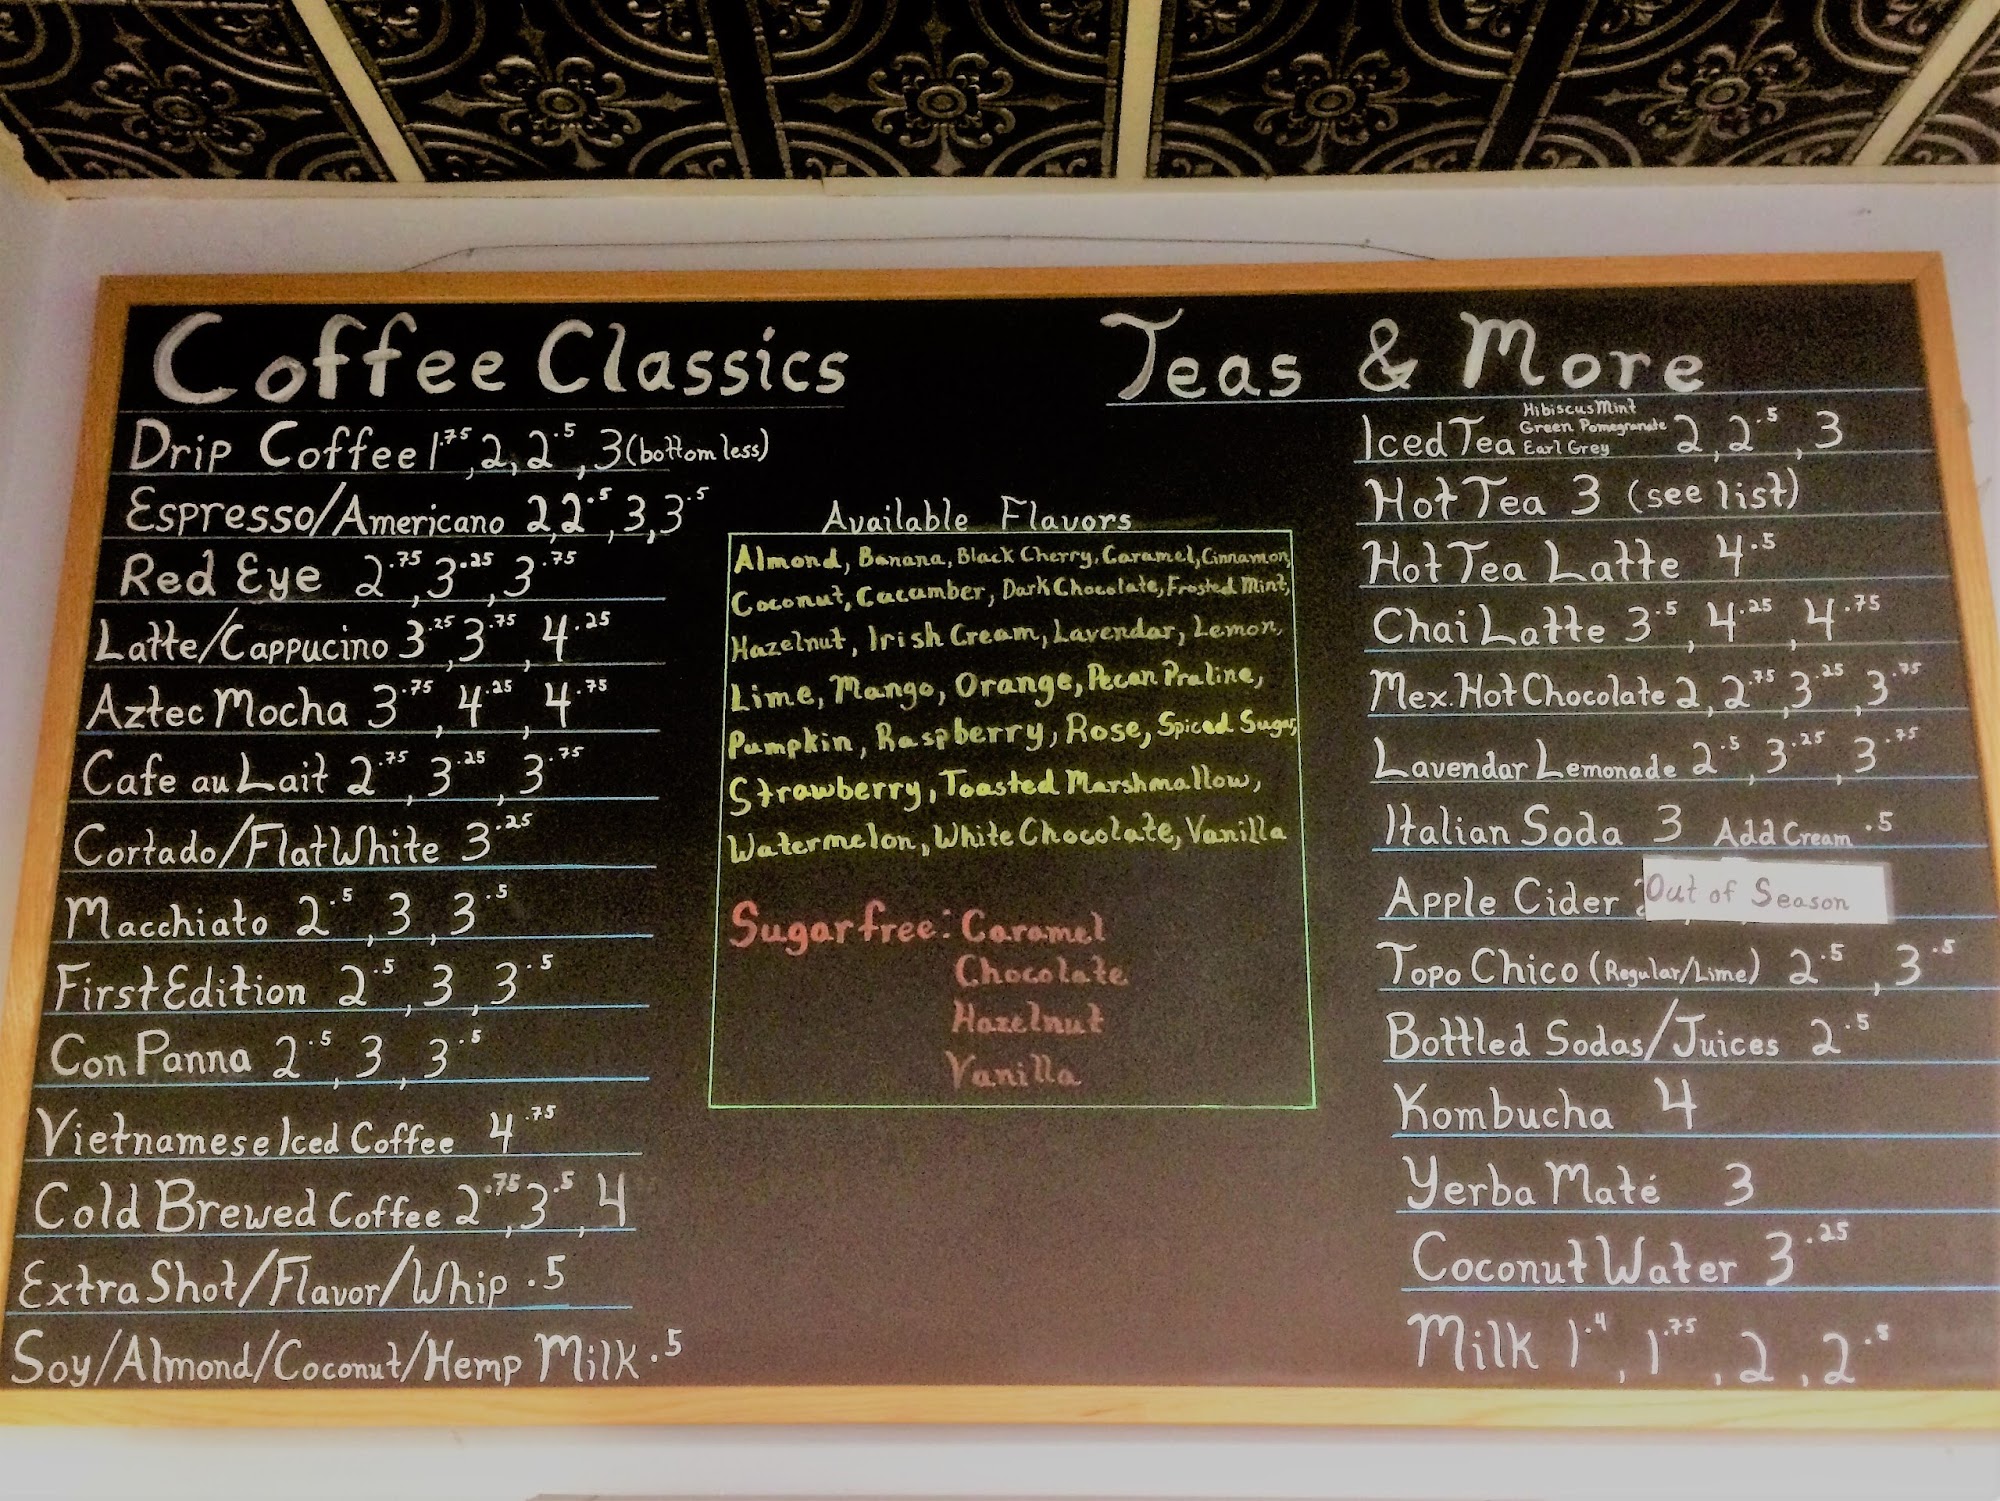 Coffee Classics
Drip Coffee 1.75, 2, 2.5, 3 (bottomless)
Espresso/Americano 2, 2.5, 3, 3.5
Red Eye 2.75, 3.25, 3.75
Latte/Cappucino 3.25, 3.75, 4.25
Aztec Mocha 3.75, 4.25, 4.75
Cafe au Lait 2.75, 3.25, 3.75
Cortado/Flat White 3.25
Macchiato 2.5, 3, 3.5
First Edition 2.5, 3, 3.5
Con Panna 2.5, 3, 3.5
Vietnamese Iced Coffee 4.75
Cold Brewed Coffee 2.75, 3.5, 4
Extra Shot/Flavor/Whip .5
Soy/Almond/Coconut/Hemp Milk .5
Available Flavors
Almond, Banana, Black Cherry, Caramel, Cinnamon,
Coconut, Cucumber, Dark Chocolate, Frosted Mint,
Hazelnut, Irish Cream, Lavendar, Lemon,
Lime, Mango, Orange, Pecan Praline,
Pumpkin, Raspberry, Rose, Spiced Sugar,
Strawberry, Toasted Marshmallow,
Watermelon, White Chocolate, Vanilla
Sugar free: Caramel
Chocolate
Hazelnut
Vanilla
Teas & More
Hibiscus Mint
Green Pomegranate
Iced Tea Earl Grey 2, 2.5, 3
Hot Tea 3 (see list)
Hot Tea Latte 4.5
Chai Latte 3.5, 4.25, 4.75
Mex. Hot Chocolate 2, 2.75, 3.25, 3.75
Lavendar Lemonade 2.5, 3.25, 3.75
Italian Soda 3 Add Cream .5
Apple Cider Out of Season
Topo Chico (Regular/Lime) 2.5, 3.5
Bottled Sodas/Juices 2.5
Kombucha 4
Yerba Maté 3
Coconut Water 3.25
Milk 1.4, 1.75, 2, 2.5